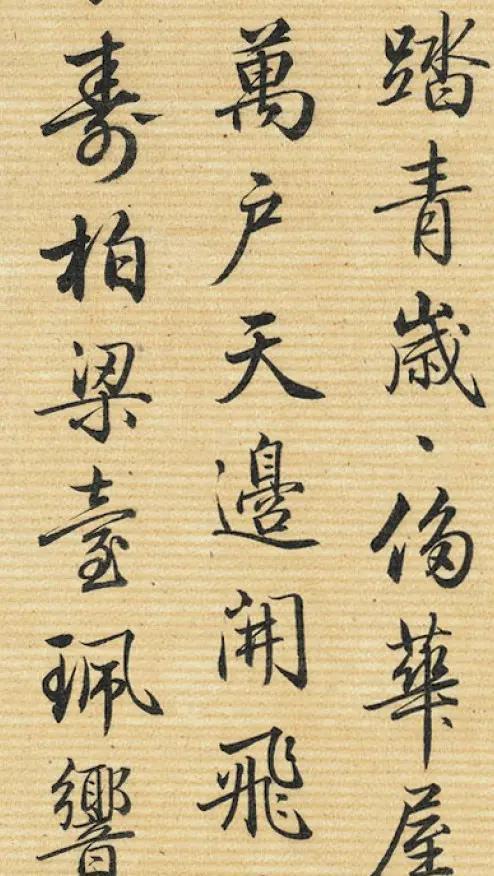 踏青歲、華屋
萬戶天邊開飛
壽柏梁臺珮響